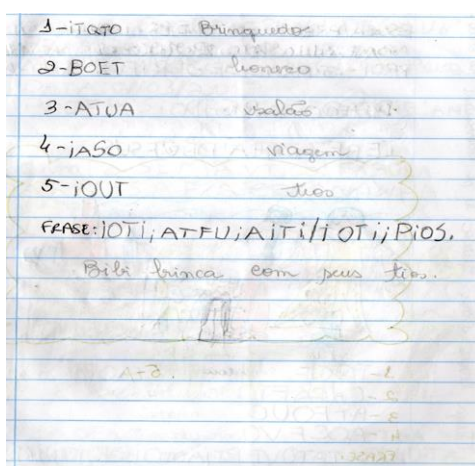 1-iTQTO Brinquedos
2-BOET boneca
3-ATUA balão
4-iASO viagem
5-iOUT tios
FRASE: iOTi; ATFU; AiTi/i OTi; PiOS.
Bibi brinca com seus tios.